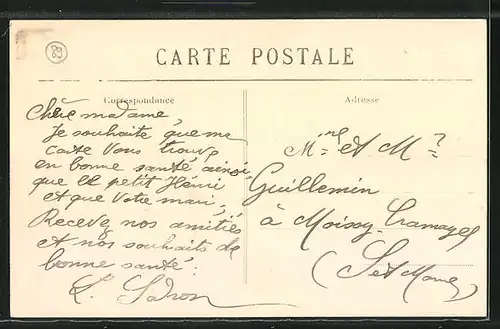 89
CARTE POSTALE
Correspondance
Adresse
Chère madame,
Je souhaite que ma
carte vous trouve
en bonne santé ainsi
que le petit Henri
et que votre mari,
Recevez nos amitiés
et nos souhaits de
bonne santé.
Mme et Mr
Guillemin
à Moissy-Cramayel
(Set Marne)